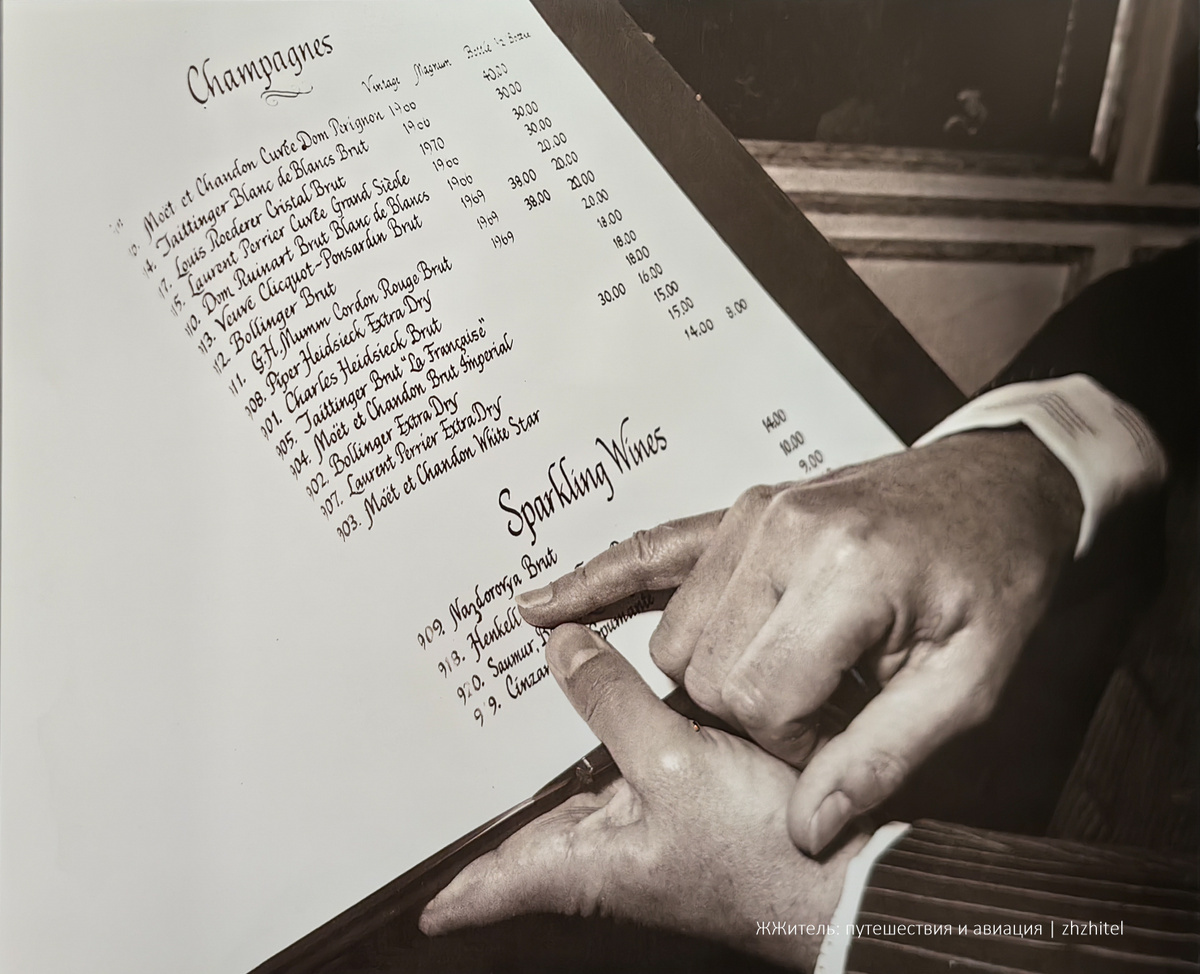 Champagnes
Vintage Magnum Bottle ½ Bottle
Moët et Chandon Cuvée Dom Pérignon 40.00
Taittinger Blanc de Blancs Brut 30.00
Louis Roederer Cristal Brut 1970 30.00
Laurent Perrier Cuvée Grand Siècle 30.00
Dom Ruinart Brut Blanc de Blancs 20.00
Veuve Clicquot-Ponsardin Brut 1969 38.00 20.00
Bollinger Brut 1969 38.00 20.00
G.H. Mumm Cordon Rouge Brut 1969 20.00
908. Piper Heidsieck Extra Dry 18.00
901. Charles Heidsieck Brut 18.00
905. Taittinger Brut "La Française" 18.00
904. Moët et Chandon Brut Imperial 30.00 16.00
902. Bollinger Extra Dry 15.00
907. Laurent Perrier Extra Dry 15.00
903. Moët et Chandon White Star 14.00 8.00
Sparkling Wines
909. Nazdorovya Brut 14.00
913. Henkell 10.00
920. Saumur, 9.00
ЖЖитель: путешествия и авиация | zhzhitel